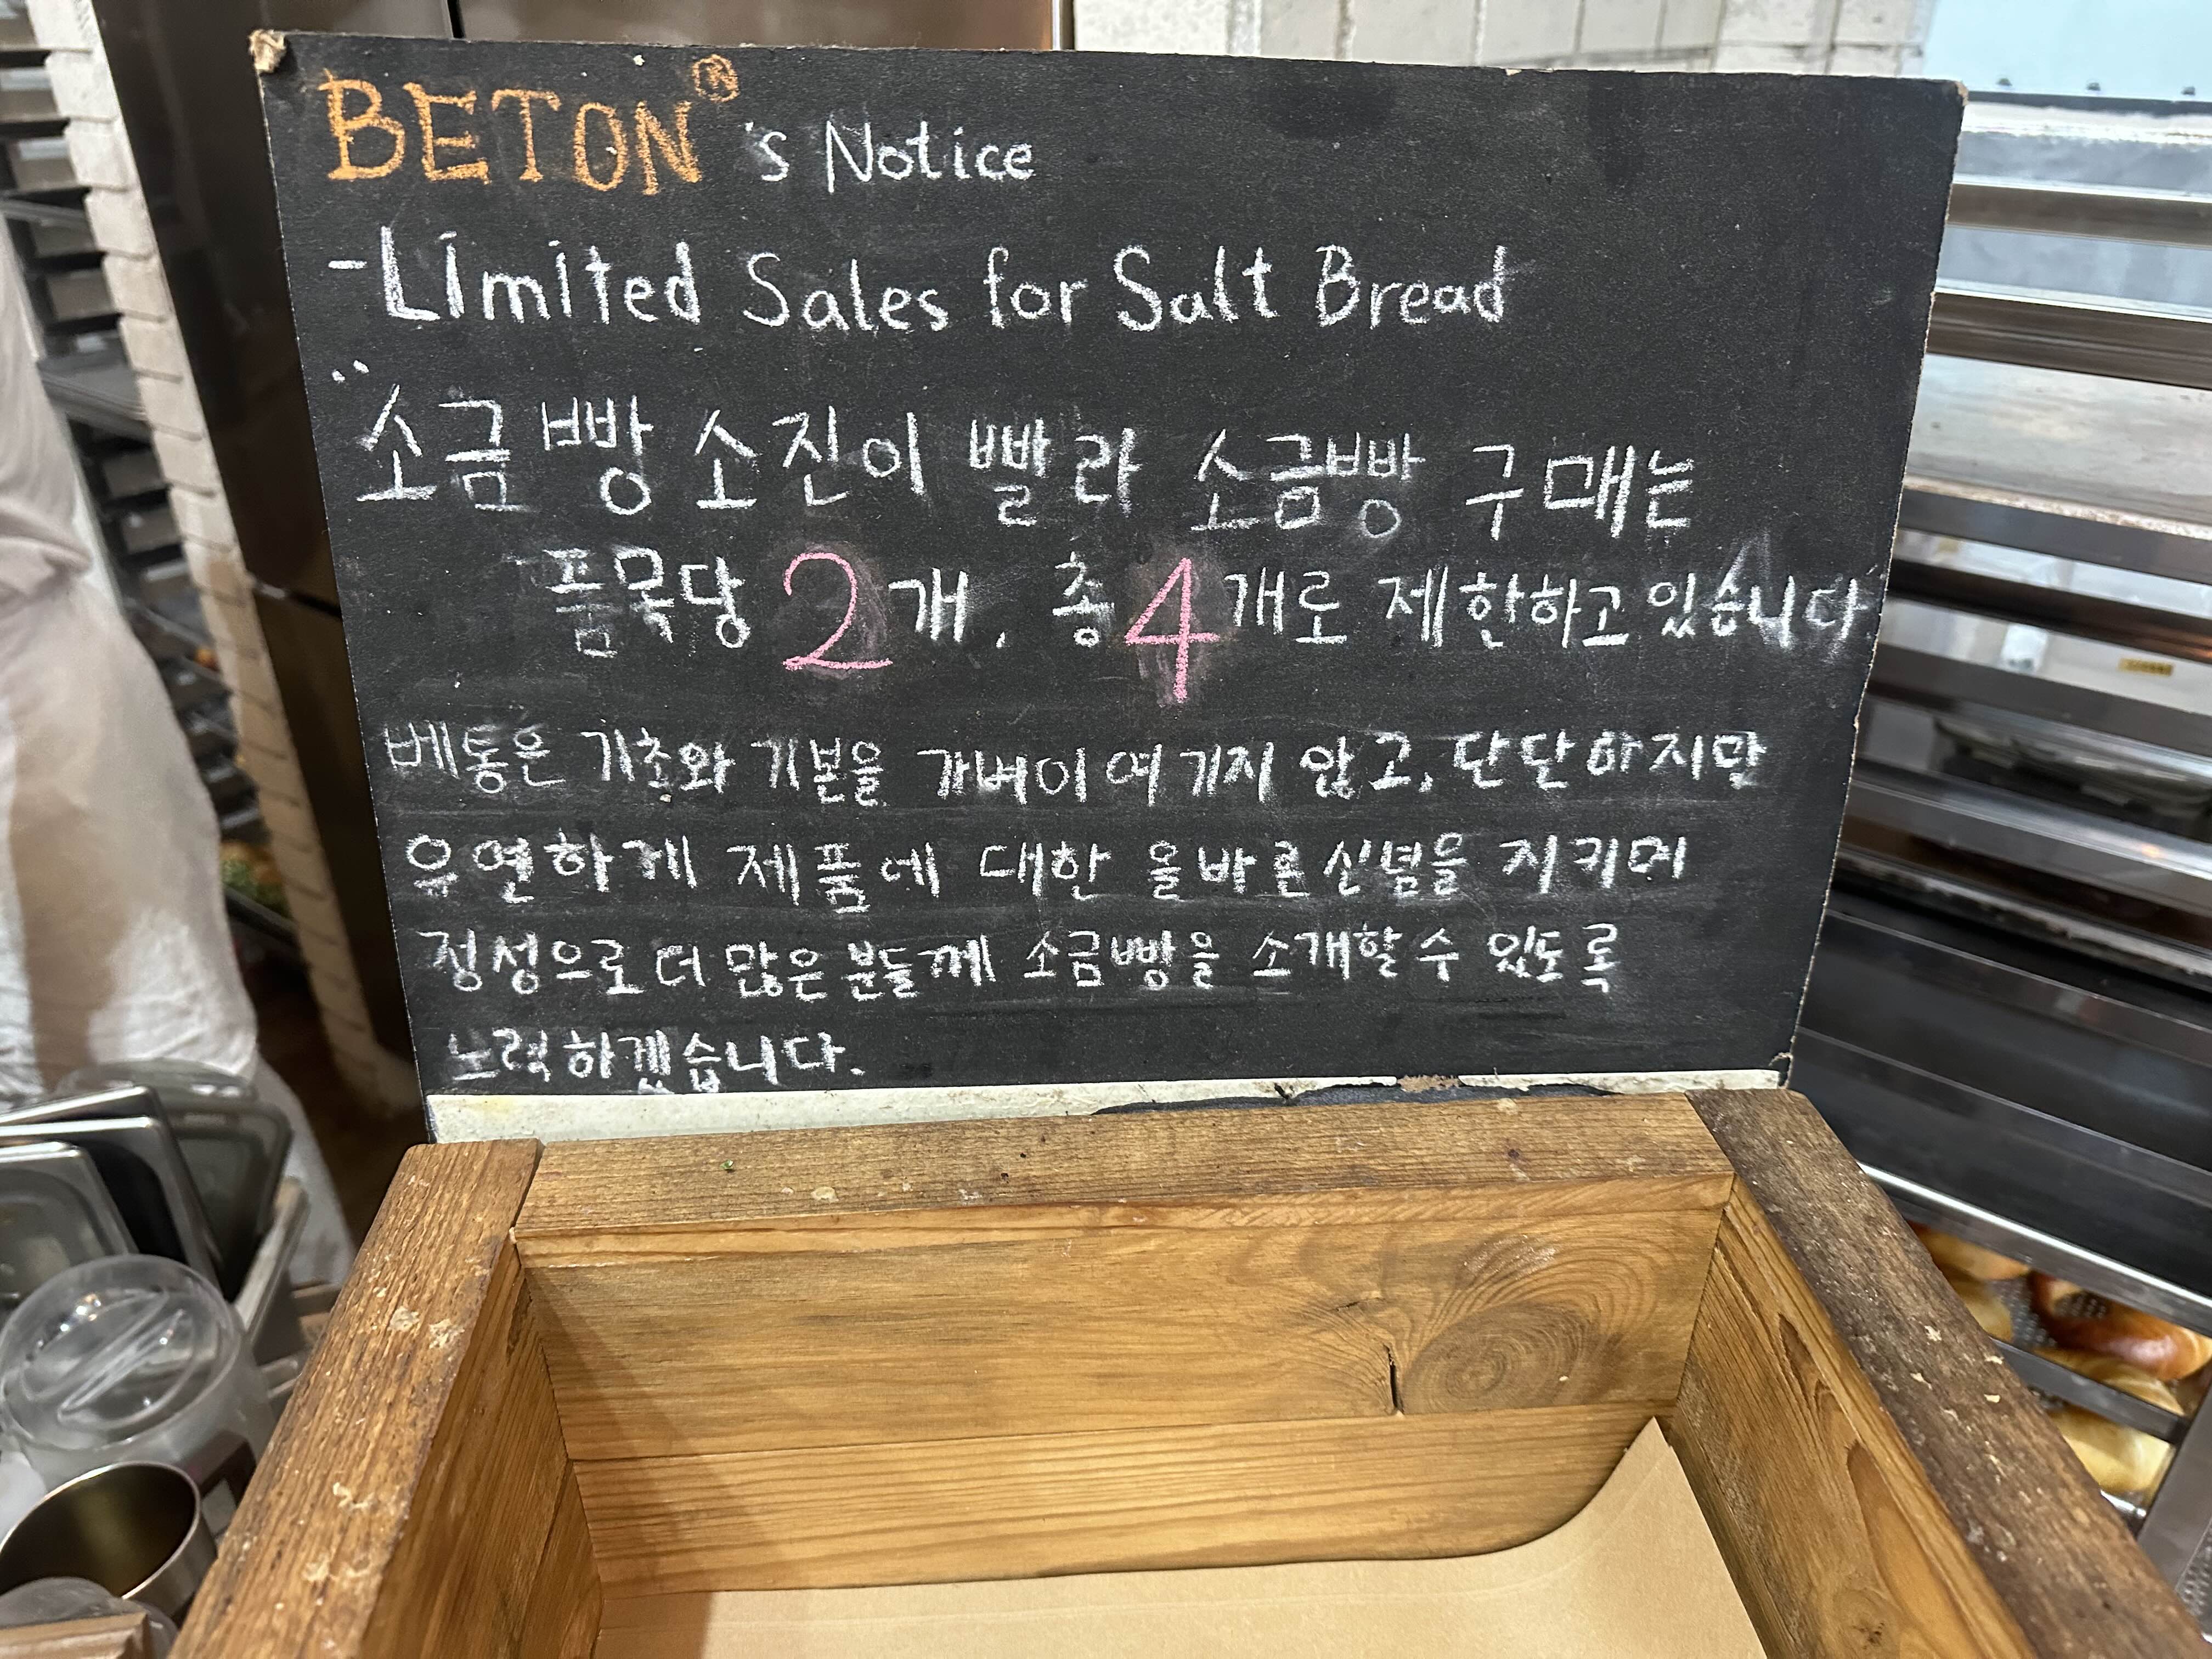 BETON® 's Notice
-Limited Sales for Salt Bread
소금빵 소진이 빨라 소금빵 구매는
품목당 2개. 총 4개로 제한하고 있습니다
베통은 기초와 기본을 가벼이 여기지 않고, 단단하지만
유연하게 제품에 대한 올바른 신념을 지키며
정성으로 더 많은 분들께 소금빵을 소개할 수 있도록
노력하겠습니다.